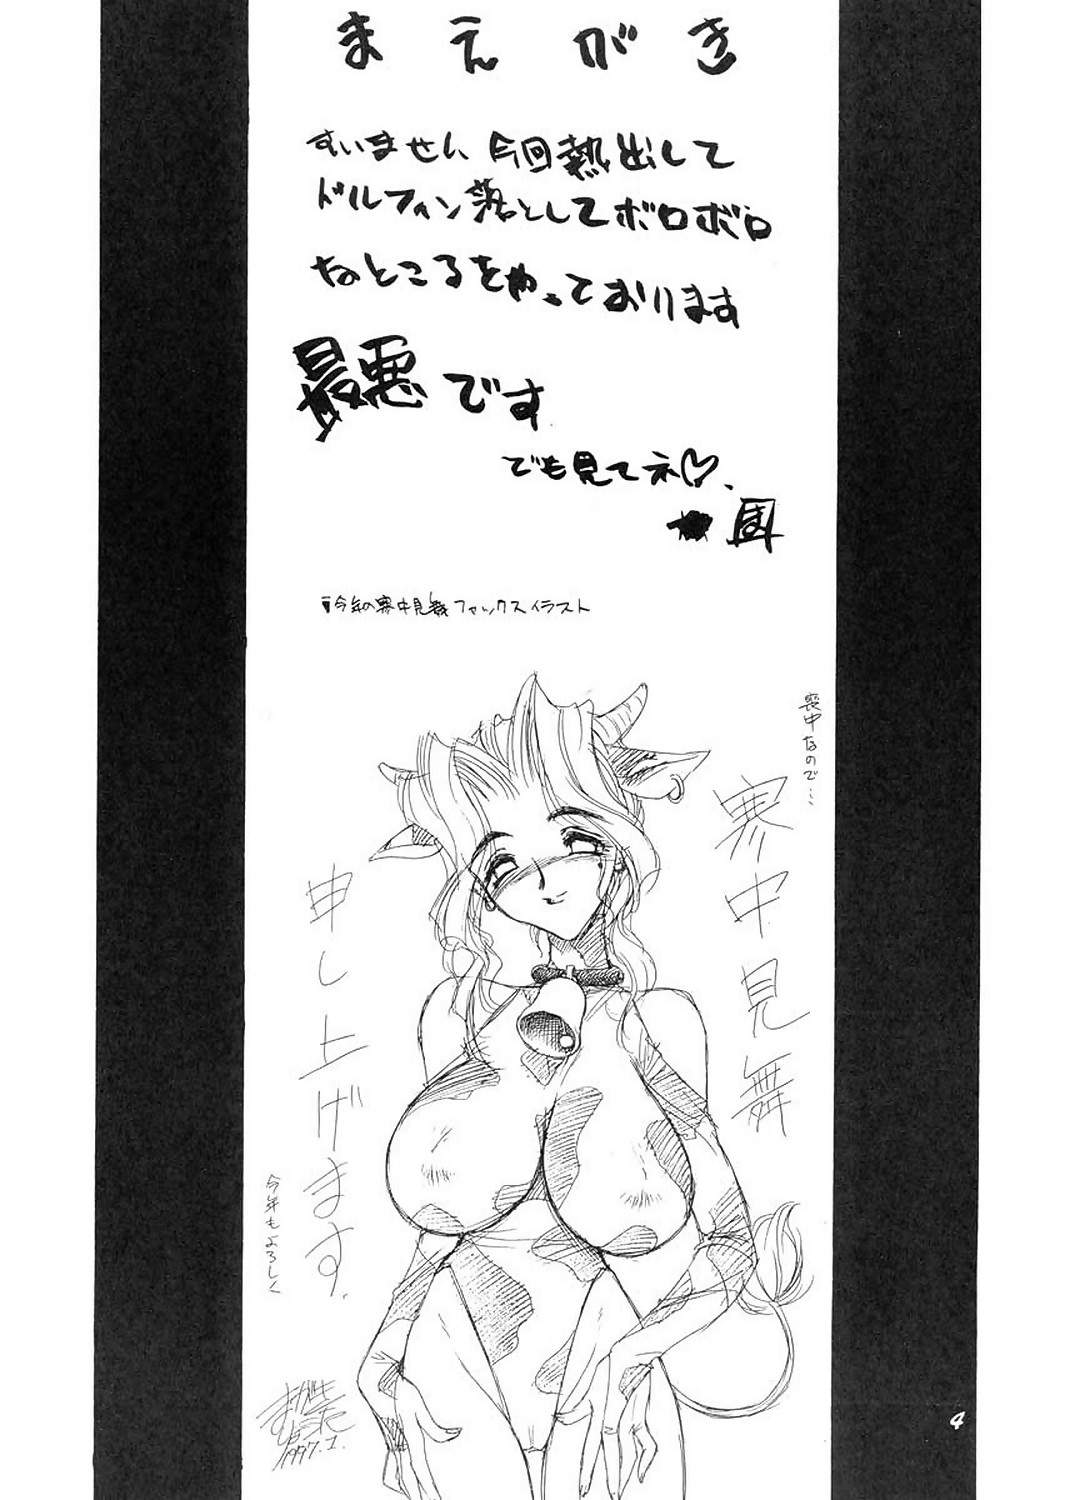 まえがき
すいません 今回熱出して
ドルフィン落としてボロボロ
なところをやっております
最悪です
でも見てネ♡、
今年の寒中見舞ファックスイラスト
喪中なので…
寒中見舞
申し上げます、
今年もよろしく
1997.1.
4